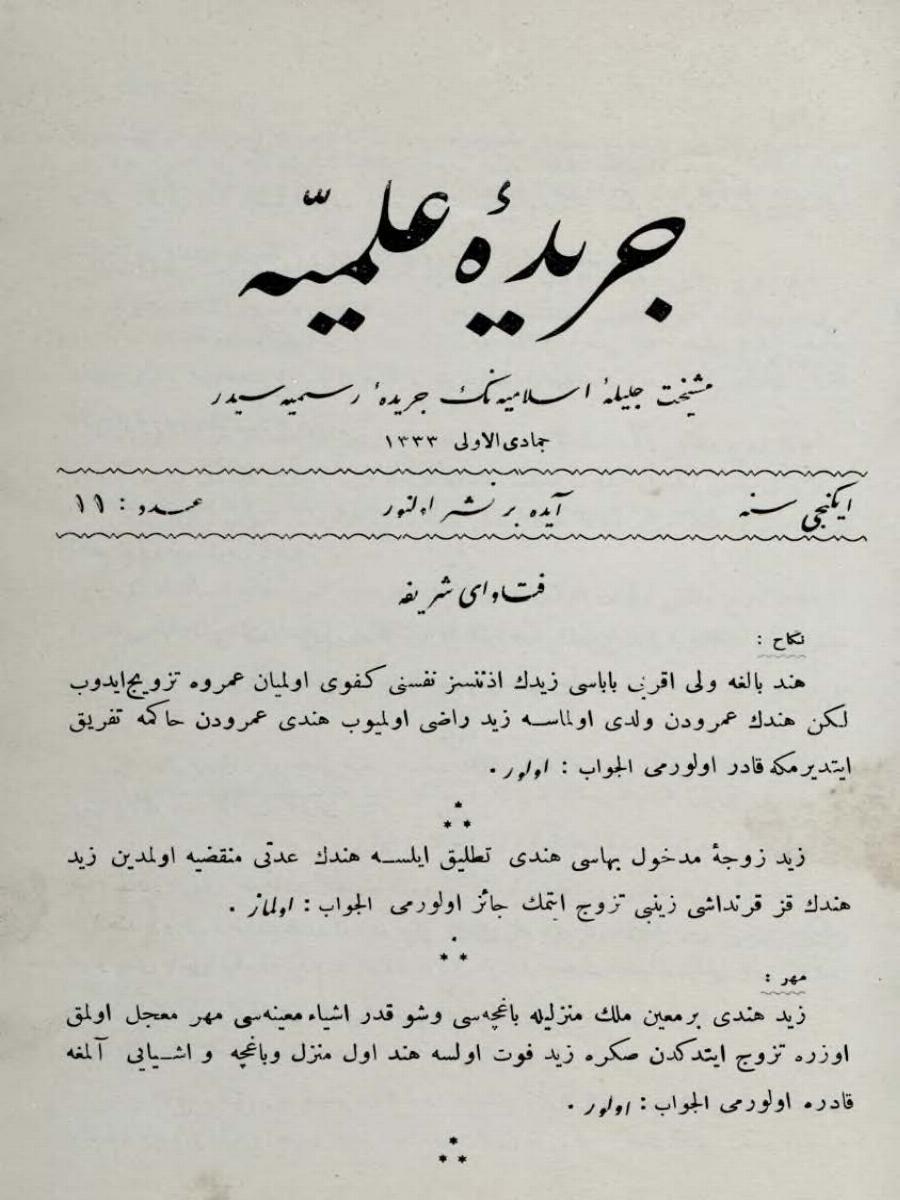 جریدۀ علمیّه
مشیخت جلیلۀ اسلامیه نك جریدۀ رسمیه سیدر
جمادی الاولی ١٣٣٣
ایكنجی سنه
آیده بر نشر اولنور
عدد : ١١
فتاوای شریفه
نكاح :
هند بالغه ولی اقرب باباسی زیدك اذننسز نفسنی كفوی اولمیان عمروه تزویج ایدوب
لكن هندك عمرودن ولدی اولماسه زید راضی اولمیوب هندی عمرودن حاكمه تفریق
ایتدیرمكه قادر اولورمی الجواب : اولور .
* * *
زید زوجۀ مدخول بهاسی هندی تطلیق ایلسه هندك عدتی منقضیه اولمدین زید
هندك قز قرنداشی زینبی تزوج ایتمك جائز اولورمی الجواب : اولماز .
* * *
مهر :
زید هندی بر معین ملك منزلیله باغچه‌سی وشو قدر اشیاء معینه‌سی مهر معجل اولمق
اوزره تزوج ایتدكدن صكره زید فوت اولسه هند اول منزل وباغچه و اشیایی آلمغه
قادره اولورمی الجواب : اولور .
* * *